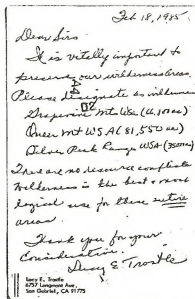 Feb 18, 1985.
Dear Sirs
It is vitally important to
preserve our wilderness areas.
Please designate as wilderness
Grapevine Mts WSA (66,100 ac)
Queer Mt WSA (81,550 ac)
Silver Peak Range WSA (33,500 ac)
There are no resource conflicts
Wilderness is the best & most
logical use for these entire
areas.
Thank you for your
Consideration.
Lucy E. Trostle
Lucy E. Trostle
6757 Longmont Ave.
San Gabriel, CA 91775